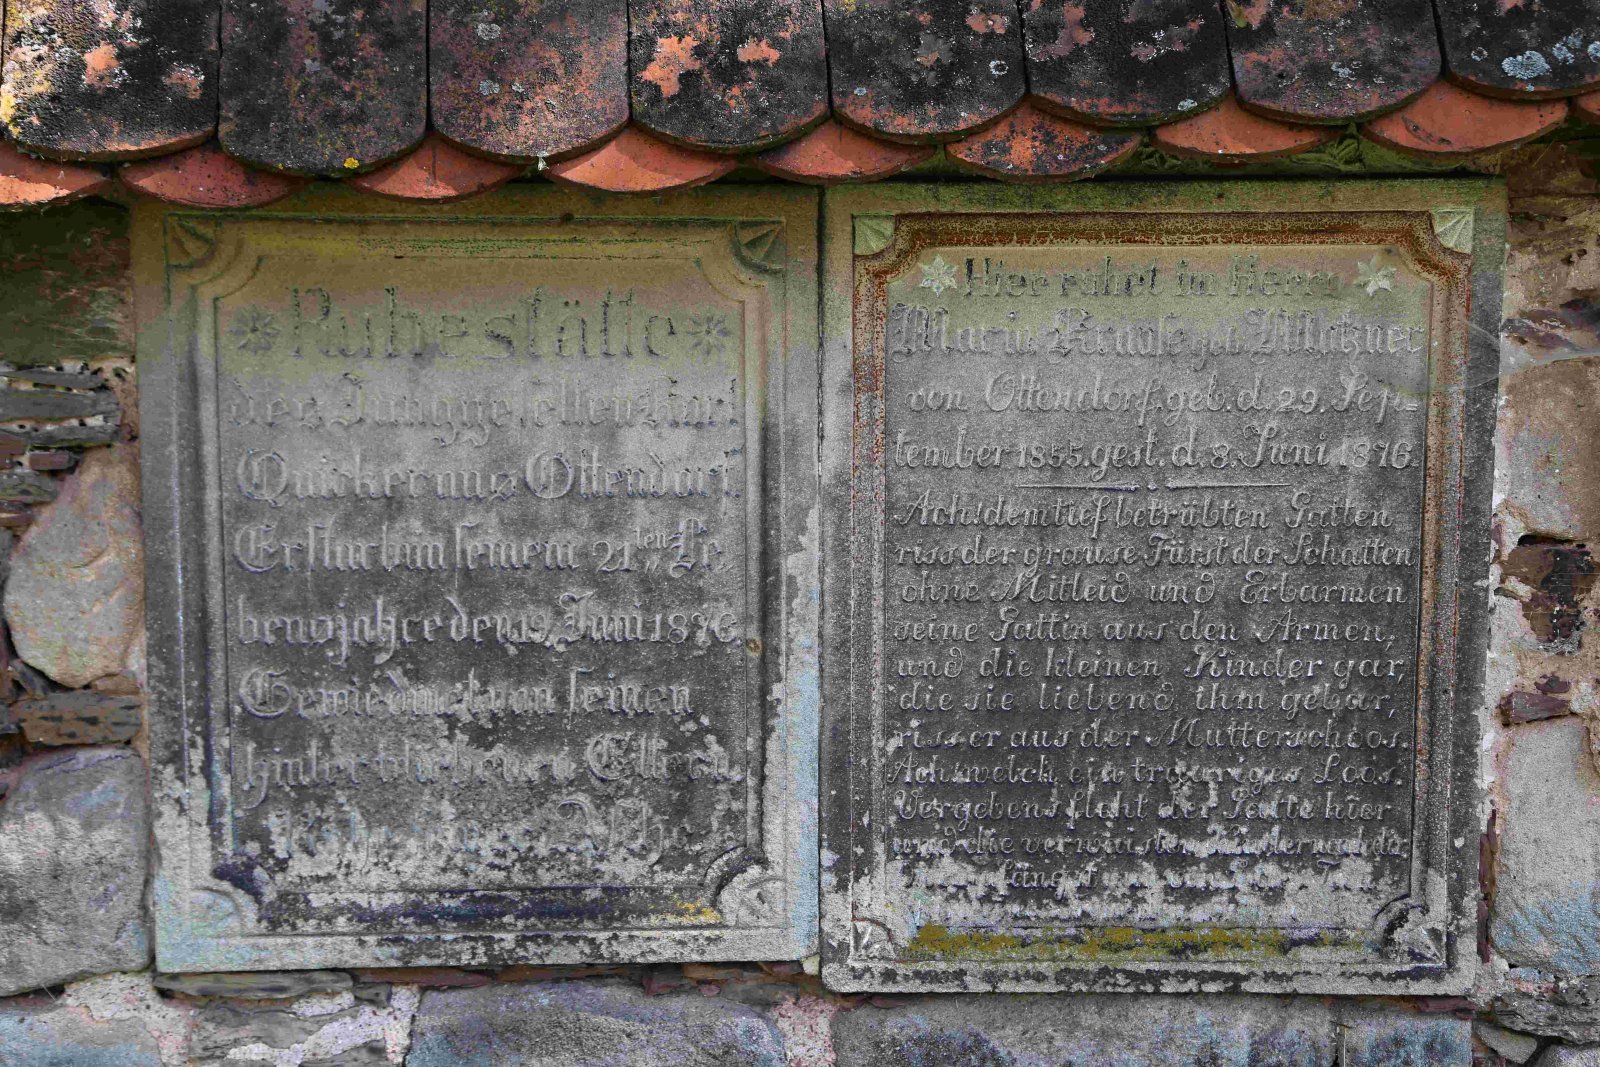 Ruhestätte
des Junggesellen Karl
Quicker aus Ottendorf.
Er starb in seinem 21ten Le-
bensjahre den 19. Juni 1876.
Gewiedmet von seinen
hinterbliebenen Eltern.
Asche
Hier ruhet im Herrn
Maria Krause geb. Matzner
von Ottendorf, geb. d. 29. Sep-
tember 1855. gest. d. 8. Juni 1876.
Ach! dem tief betrübten Gatten
riss der grause Fürst der Schatten
ohne Mitleid und Erbarmen
seine Gattin aus den Armen,
und die kleinen Kinder gar,
die sie liebend ihm gebar,
riss er aus der Mutterschoos.
Ach! welch ein trauriges Loos.
Vergebens fleht der Gatte hier
und die verwaisten Kinder nach dir
längst